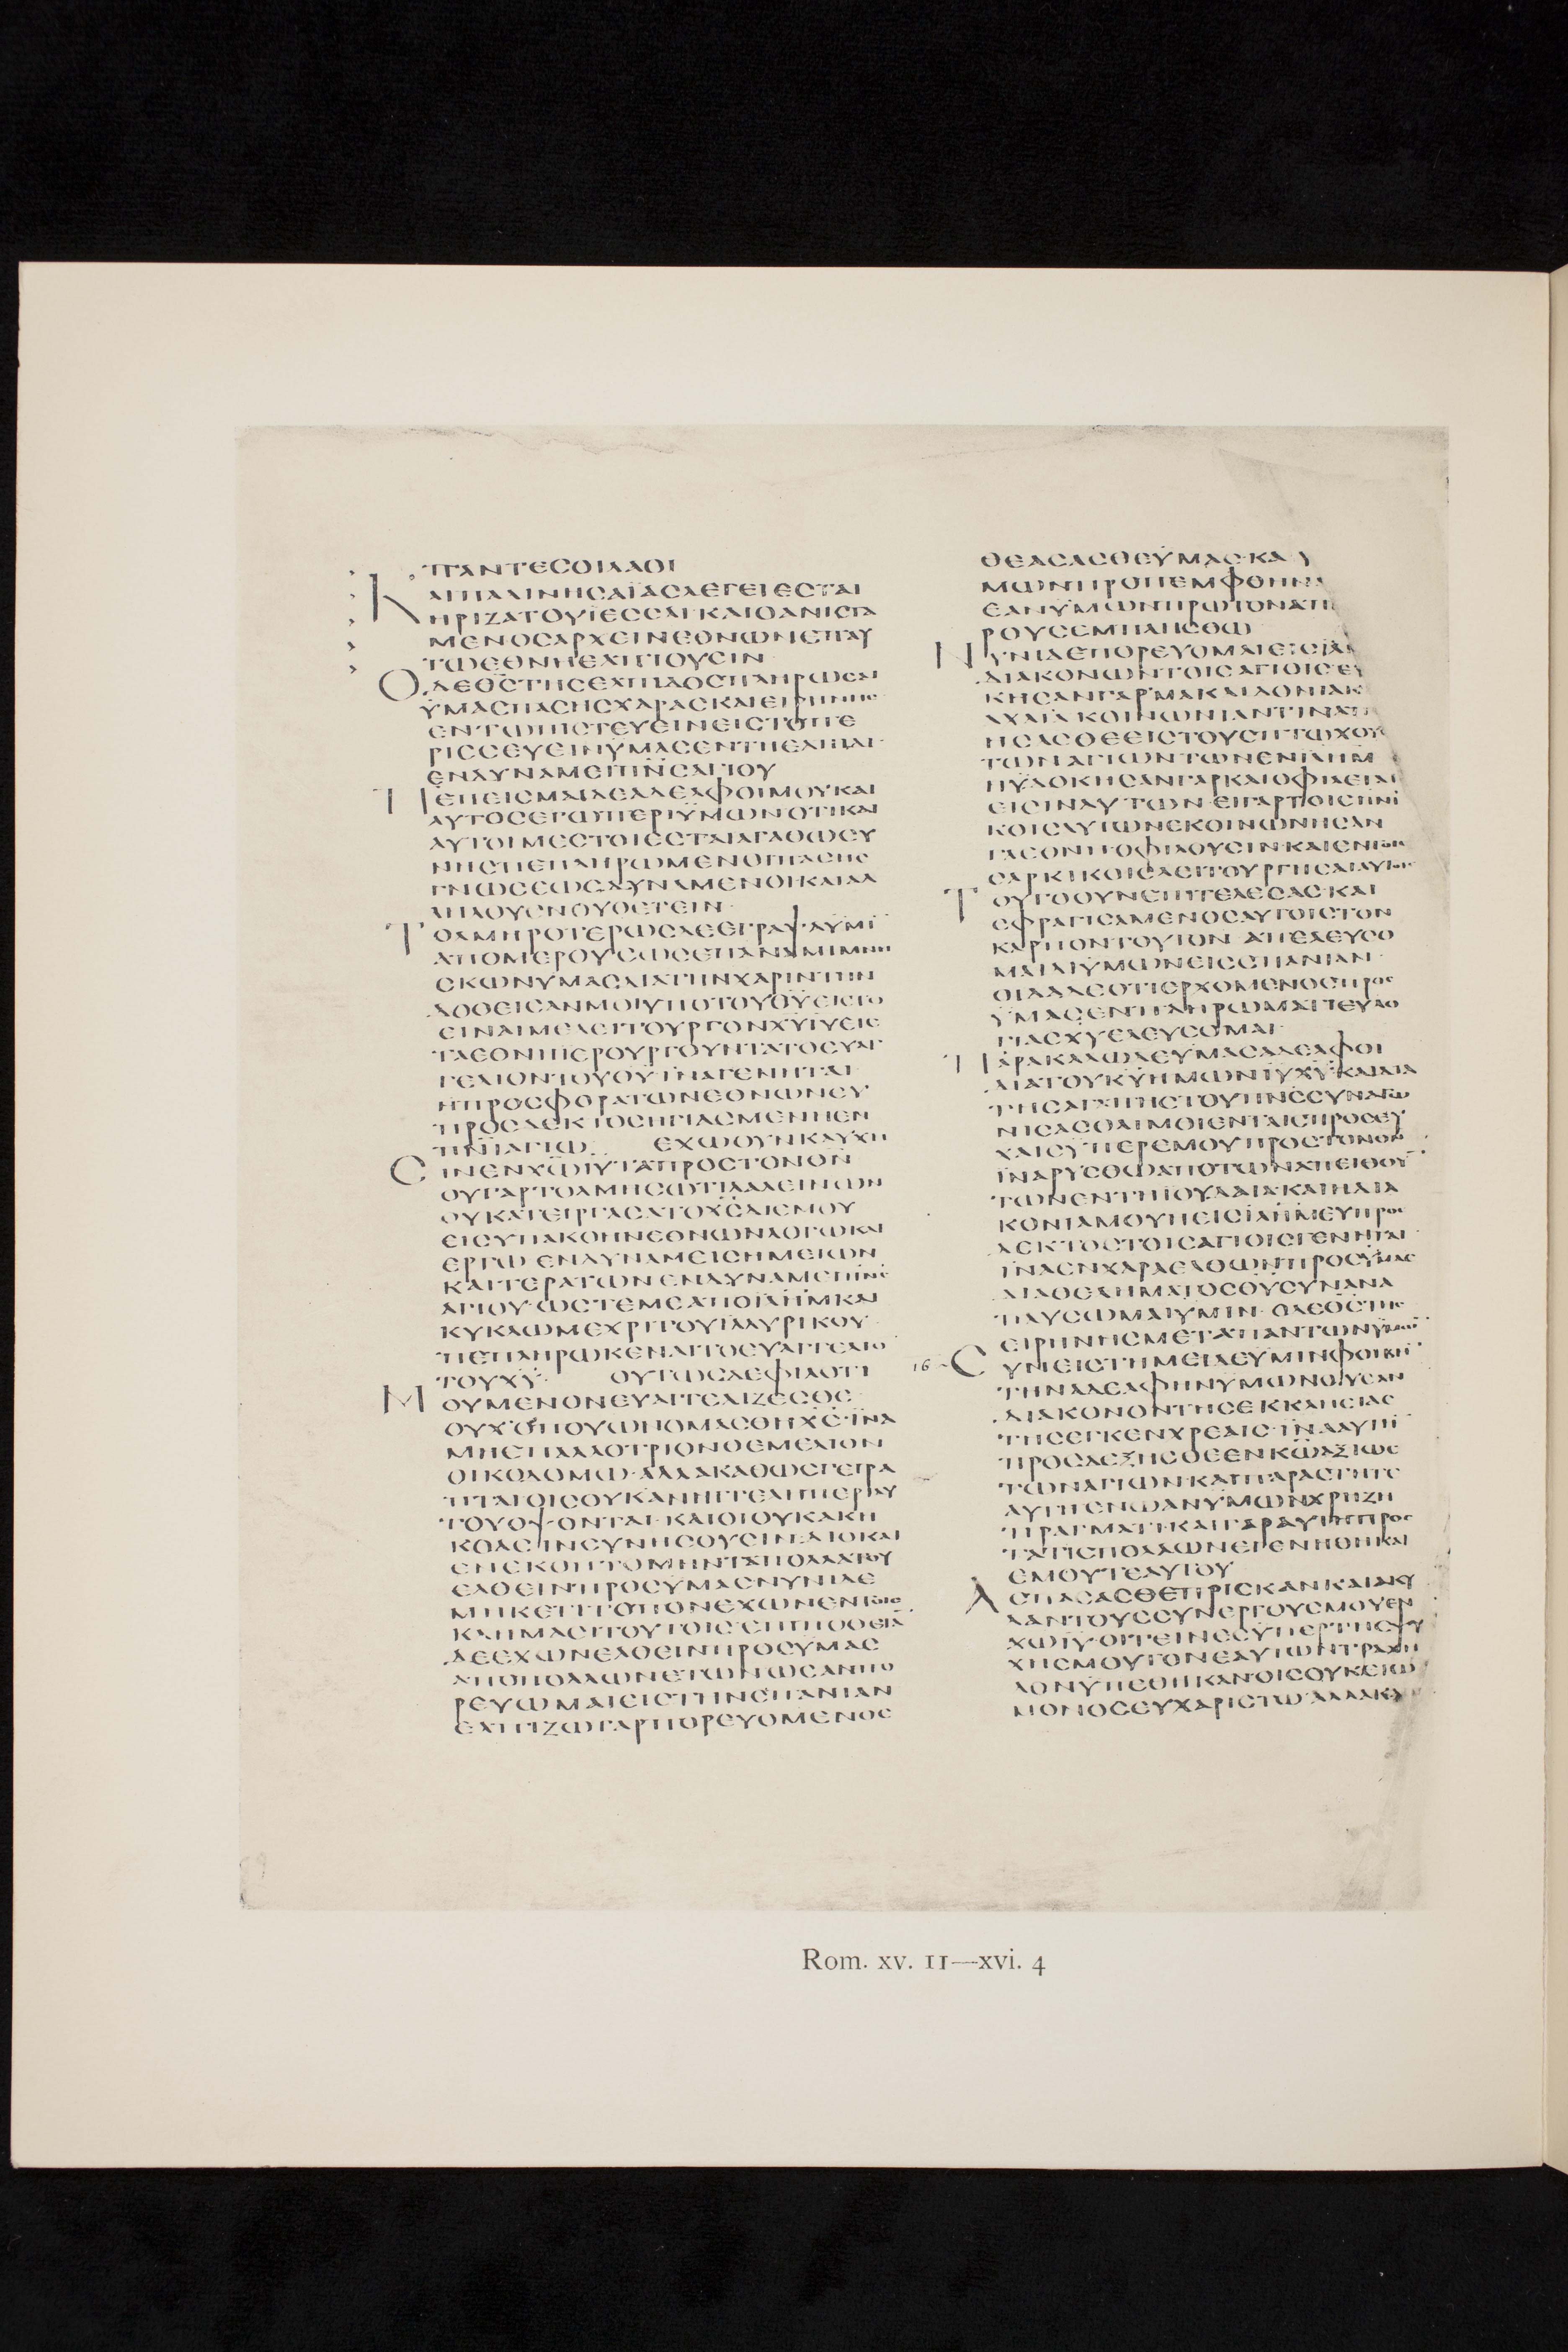 ΠΑΝΤΕСΟΙΛΑΟΙ
ΚΑΙΠΑΛΙΝΗСΑΪΑСΛΕΓΕΙΕСΤΑΙ
ΗΡΙΖΑΤΟΥΪΕССΑΙΚΑΙΟΑΝΙСΤΑ
ΜΕΝΟСΑΡΧΕΙΝΕΘΝΩΝΕΠΑΥ
ΤΩΕΘΝΗΕΛΠΙΟΥСΙΝ
ΟΔΕΘ̅С̅ΤΗСΕΛΠΙΔΟСΠΛΗΡΩСΑΙ
ΫΜΑСΠΑСΗСΧΑΡΑСΚΑΙΕΙΡΗΝΗС
ΕΝΤΩΠΙСΤΕΥΕΙΝΕΙСΤΟΠΕ
ΡΙССΕΥΕΙΝΫΜΑСΕΝΤΗΕΛΠΙΔΙ
ΕΝΔΥΝΑΜΕΙΠΝ̅С̅ΑΓΙΟΥ
ΠΕΠΕΙСΜΑΙΔΕΑΔΕΛΦΟΙΜΟΥΚΑΙ
ΑΥΤΟСΕΓΩΠΕΡΙΫΜΩΝΟΤΙΚΑΙ
ΑΥΤΟΙΜΕСΤΟΙΕСΤΑΙΑΓΑΘΩСΥ
ΝΗСΠΕΠΛΗΡΩΜΕΝΟΙΠΑСΗС
ΓΝΩСΕΩСΔΥΝΑΜΕΝΟΙΚΑΙΑΛ
ΛΗΛΟΥСΝΟΥΘΕΤΕΙΝ
ΤΟΛΜΗΡΟΤΕΡΩСΔΕΕΓΡΑΨΑΫΜΙ
ΑΠΟΜΕΡΟΥСΩСΕΠΑΝΑΜΙΜΝΗ
СΚΩΝΥΜΑСΔΙΑΤΗΝΧΑΡΙΝΤΗΝ
ΔΟΘΕΙСΑΝΜΟΙΥΠΟΤΟΥΘ̅Υ̅ΕΙСΤΟ
ΕΙΝΑΙΜΕΛΕΙΤΟΥΡΓΟΝΧ̅Υ̅Ι̅Υ̅ΕΙС
ΤΑΕΘΝΗΙΕΡΟΥΡΓΟΥΝΤΑΤΟΕΥΑΓ
ΓΕΛΙΟΝΤΟΥΘ̅Υ̅ΙΝΑΓΕΝΗΤΑΙ
ΗΠΡΟСΦΟΡΑΤΩΝΕΘΝΩΝΕΥ
ΠΡΟСΔΕΚΤΟСΗΓΙΑСΜΕΝΗΕΝ
ΠΝ̅Ι̅ΑΓΙΩ ΕΧΩΟΥΝΚΑΥΧΗ
СΙΝΕΝΧ̅Ω̅Ι̅Υ̅ΤΑΠΡΟСΤΟΝΘ̅Ν̅
ΟΥΓΑΡΤΟΛΜΗСΩΤΙΛΑΛΕΙΝΩΝ
ΟΥΚΑΤΕΙΡΓΑСΑΤΟΧ̅С̅ΔΙΕΜΟΥ
ΕΙСΥΠΑΚΟΗΝΕΘΝΩΝΛΟΓΩΚΑΙ
ΕΡΓΩ ΕΝΔΥΝΑΜΕΙСΗΜΕΙΩΝ
ΚΑΙΤΕΡΑΤΩΝΕΝΔΥΝΑΜΕΙΠΝ̅С̅
ΑΓΙΟΥ·ΩСΤΕΜΕΑΠΟΙΛ̅Η̅Μ̅ΚΑΙ
ΚΥΚΛΩΜΕΧΡΙΤΟΥΪΛΛΥΡΙΚΟΥ
ΠΕΠΛΗΡΩΚΕΝΑΙΤΟΕΥΑΓΓΕΛΙΟ
ΤΟΥΧ̅Υ̅· ΟΥΤΩСΔΕΦΙΛΟΤΙ
ΜΟΥΜΕΝΟΝΕΥΑΓΓΕΛΙΖΕСΘΕ
ΟΥΧΟΠΟΥΩΝΟΜΑСΘΗΧ̅С̅·ΪΝΑ
ΜΗΕΠΑΛΛΟΤΡΙΟΝΘΕΜΕΛΙΟΝ
ΟΙΚΟΔΟΜΩ·ΑΛΛΑΚΑΘΩСΓΕΓΡΑ
ΠΤΑΙΟΙСΟΥΚΑΝΗΓΓΕΛΗΠΕΡΙΑΥ
ΤΟΥΟΨΟΝΤΑΙ·ΚΑΙΟΙΟΥΚΑΚΗ
ΚΟΑСΙΝСΥΝΗСΟΥСΙΝ·ΔΙΟΚΑΙ
ΕΝΕΚΟΠΤΟΜΗΝΤΑΠΟΛΛΑΤΟΥ
ΕΛΘΕΙΝΠΡΟСΥΜΑСΝΥΝΙΔΕ
ΜΗΚΕΤΙΤΟΠΟΝΕΧΩΝΕΝΤΟΙС
ΚΛΙΜΑСΙΤΟΥΤΟΙСΕΠΙΠΟΘΕΙΑ̅
ΔΕΕΧΩΝΕΛΘΕΙΝΠΡΟСΥΜΑС
ΑΠΟΠΟΛΛΩΝΕΤΩΝΩСΑΝΠΟ
ΡΕΥΩΜΑΙΕΙСΤΗΝСΠΑΝΙΑΝ
ΕΛΠΙΖΩΓΑΡΠΟΡΕΥΟΜΕΝΟС
ΘΕΑСΑСΘΕΫΜΑС·ΚΑ
ΜΩΝΠΡΟΠΕΜΦΘΗΝΑ
ΕΑΝΫΜΩΝΠΡΩΤΟΝΑΠ
ΡΟΥСΕΜΠΛΗСΘΩ
ΝΥΝΙΔΕΠΟΡΕΥΟΜΑΙΕΙСΙΛ
ΔΙΑΚΟΝΩΝΤΟΙСΑΓΙΟΙСΕΥ
ΚΗСΑΝΓΑΡΜΑΚΑΙΔΟΝΙΑΚ
ΑΧΑΪΑΚΟΙΝΩΝΙΑΝΤΙΝΑΠ
ΗСΑСΘΕΕΙСΤΟΥСΠΤΩΧΟΥ
ΤΩΝΑΓΙΩΝΤΩΝΕΝΙΛ̅Η̅Μ̅
ΗΥΔΟΚΗСΑΝΓΑΡΚΑΙΟΦΙΛΕΙΑΙ
ΕΙСΙΝΑΥΤΩΝ·ΕΙΓΑΡΤΟΙСΠΝΙ
ΚΟΙСΑΥΤΩΝΕΚΟΙΝΩΝΗСΑΝ
ΤΑΕΘΝΗΟΦΙΛΟΥСΙΝΚΑΙΕΝΤΟΙС
СΑΡΚΙΚΟΙСΛΕΙΤΟΥΡΓΗСΑΙΑΥΤΟΙС
ΤΟΥΤΟΟΥΝΕΠΙΤΕΛΕСΑСΚΑΙ
СΦΡΑΓΙСΑΜΕΝΟСΑΥΤΟΙСΤΟΝ
ΚΑΡΠΟΝΤΟΥΤΟΝ·ΑΠΕΛΕΥСΟ
ΜΑΙΔΙΫΜΩΝΕΙССΠΑΝΙΑΝ
ΟΙΔΑΔΕΟΤΙΕΡΧΟΜΕΝΟСΠΡΟС
ΫΜΑСΕΝΠΛΗΡΩΜΑΤΙΕΥΛΟ
ΓΙΑСΧ̅Υ̅ΕΛΕΥСΟΜΑΙ
ΠΑΡΑΚΑΛΩΔΕΥΜΑСΑΔΕΛΦΟΙ
ΔΙΑΤΟΥΚ̅Υ̅ΗΜΩΝΙ̅Υ̅Χ̅Υ̅·ΚΑΙΔΙΑ
ΤΗСΑΓΑΠΗСΤΟΥΠΝ̅С̅СΥΝΑΓΩ
ΝΙСΑСΘΑΙΜΟΙΕΝΤΑΙСΠΡΟСΕΥ
ΧΑΙСΥΠΕΡΕΜΟΥΠΡΟСΤΟΝΘΟΝ
ΪΝΑΡΥСΘΩΑΠΟΤΩΝΑΠΕΙΘΟΥ
ΤΩΝΕΝΤΗΪΟΥΔΑΙΑ·ΚΑΙΗΔΙΑ
ΚΟΝΙΑΜΟΥΗΕΙСΙΛ̅Η̅Μ̅ΕΥΠΡΟС
ΔΕΚΤΟСΤΟΙСΑΓΙΟΙСΓΕΝΗΤΑΙ
ΪΝΑΕΝΧΑΡΑΕΛΘΩΝΠΡΟСΫΜΑС
ΔΙΑΘΕΛΗΜΑΤΟСΘ̅Υ̅СΥΝΑΝΑ
ΠΑΥСΩΜΑΙΥΜΙΝ·ΟΔΕΘ̅С̅ΤΗС
ΕΙΡΗΝΗСΜΕΤΑΠΑΝΤΩΝΫΜΩΝ
16 СΥΝΕΙСΤΗΜΕΙΔΕΥΜΙΝΦΟΙΒΗ
ΤΗΝΑΔΕΛΦΗΝΥΜΩΝΟΥСΑΝ
ΔΙΑΚΟΝΟΝΤΗСΕΚΚΛΗСΙΑС
ΤΗСΕΓΚΕΝΧΡΕΑΙС·ΪΝΑΑΥΤΗ
ΠΡΟСΔΕΞΗСΘΕΕΝΚ̅Ω̅ΑΞΙΩС
ΤΩΝΑΓΙΩΝ·ΚΑΙΠΑΡΑСΤΗΤΕ
ΑΥΤΗΕΝΩΑΝΥΜΩΝΧΡΗΖΗ
ΠΡΑΓΜΑΤΙ·ΚΑΙΓΑΡΑΥΤΗΠΡΟС
ΤΑΤΙСΠΟΛΛΩΝΕΓΕΝΗΘΗΚΑΙ
ΕΜΟΥΤΕΑΥΤΟΥ
ΑСΠΑСΑСΘΕΠΡΙСΚΑΝΚΑΙΑΚΥ
ΛΑΝΤΟΥССΥΝΕΡΓΟΥСΜΟΥΕΝ
ΧΩ̅Ι̅Υ̅·ΟΙΤΕΙΝΕСΥΠΕΡΤΗСΨΥ
ΧΗСΜΟΥΤΟΝΕΑΥΤΩΝΤΡΑΧΗ
ΛΟΝΫΠΕΘΗΚΑΝ·ΟΙСΟΥΚΕΓΩ
ΜΟΝΟСΕΥΧΑΡΙСΤΩ·ΑΛΛΑΚΑ
Rom. xv. 11—xvi. 4